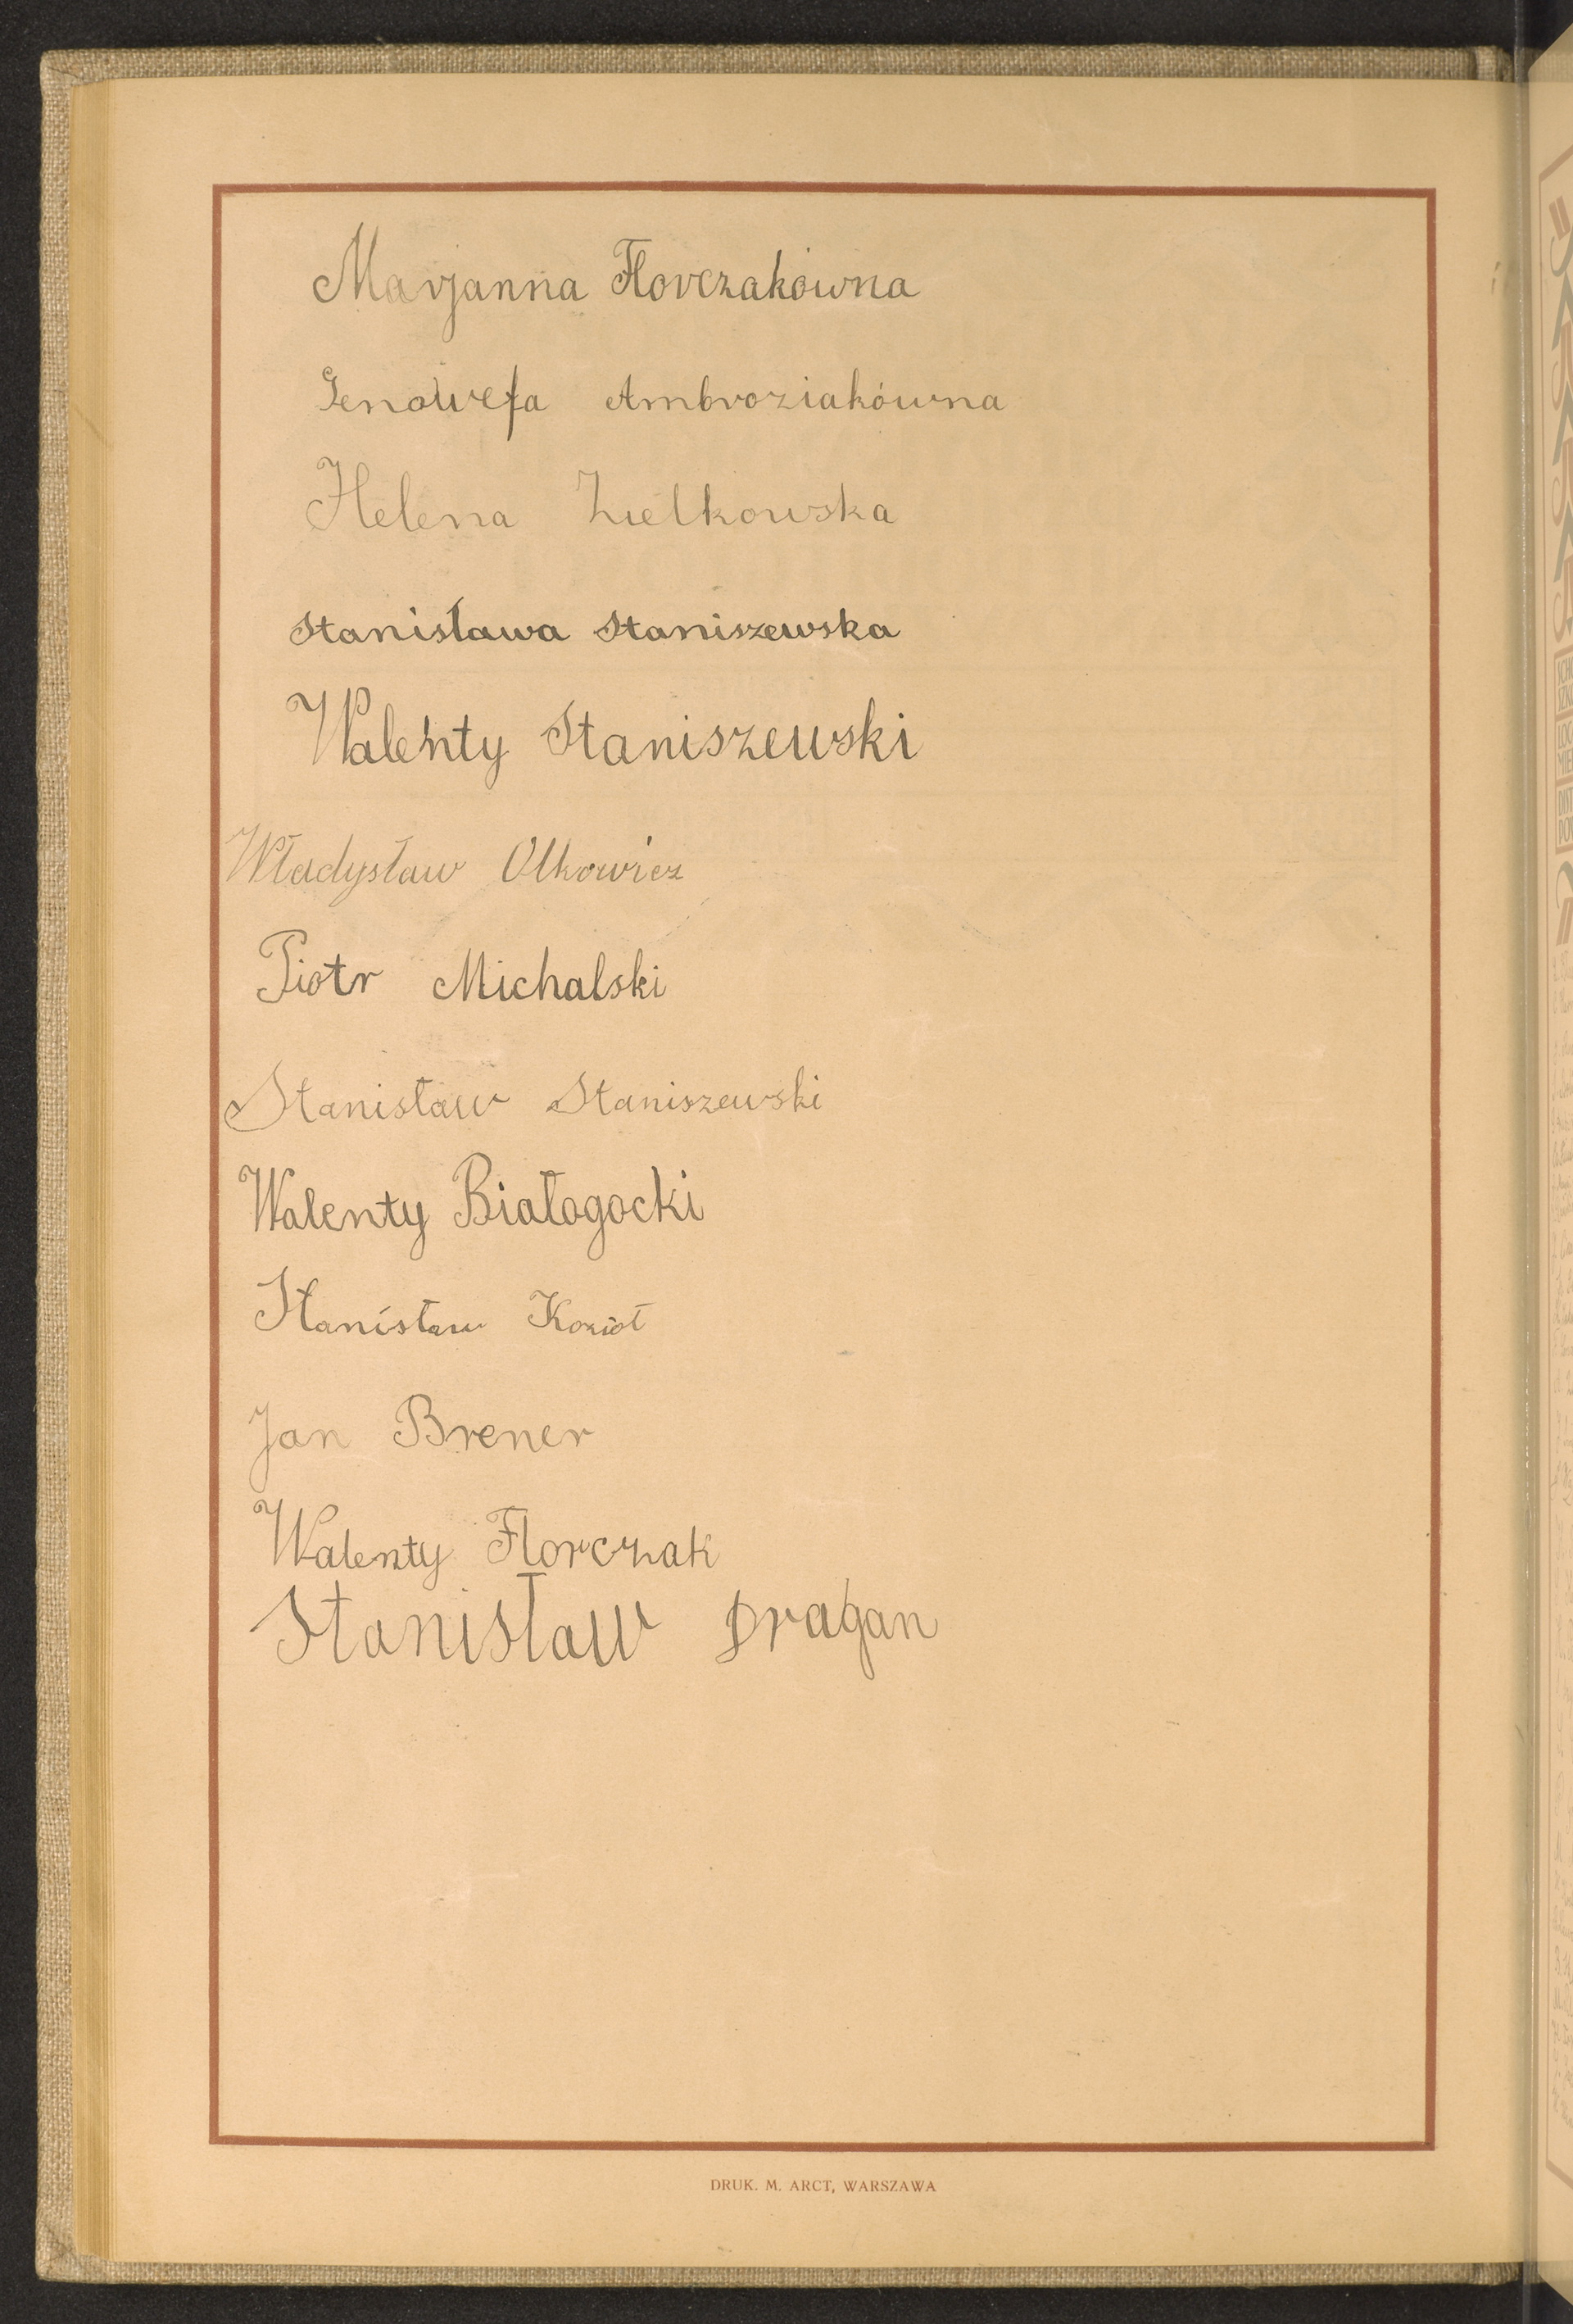 Marjanna Florczakówna
Genowefa Ambroziakówna
Helena Zielkowska
Stanisława Staniszewska
Walenty Staniszewski
Władysław Olkowicz
Piotr Michalski
Stanisław Staniszewski
Walenty Białogocki
Stanisław Kozioł
Jan Brener
Walenty Florczak
Stanisław Dragan
DRUK. M. ARCT, WARSZAWA